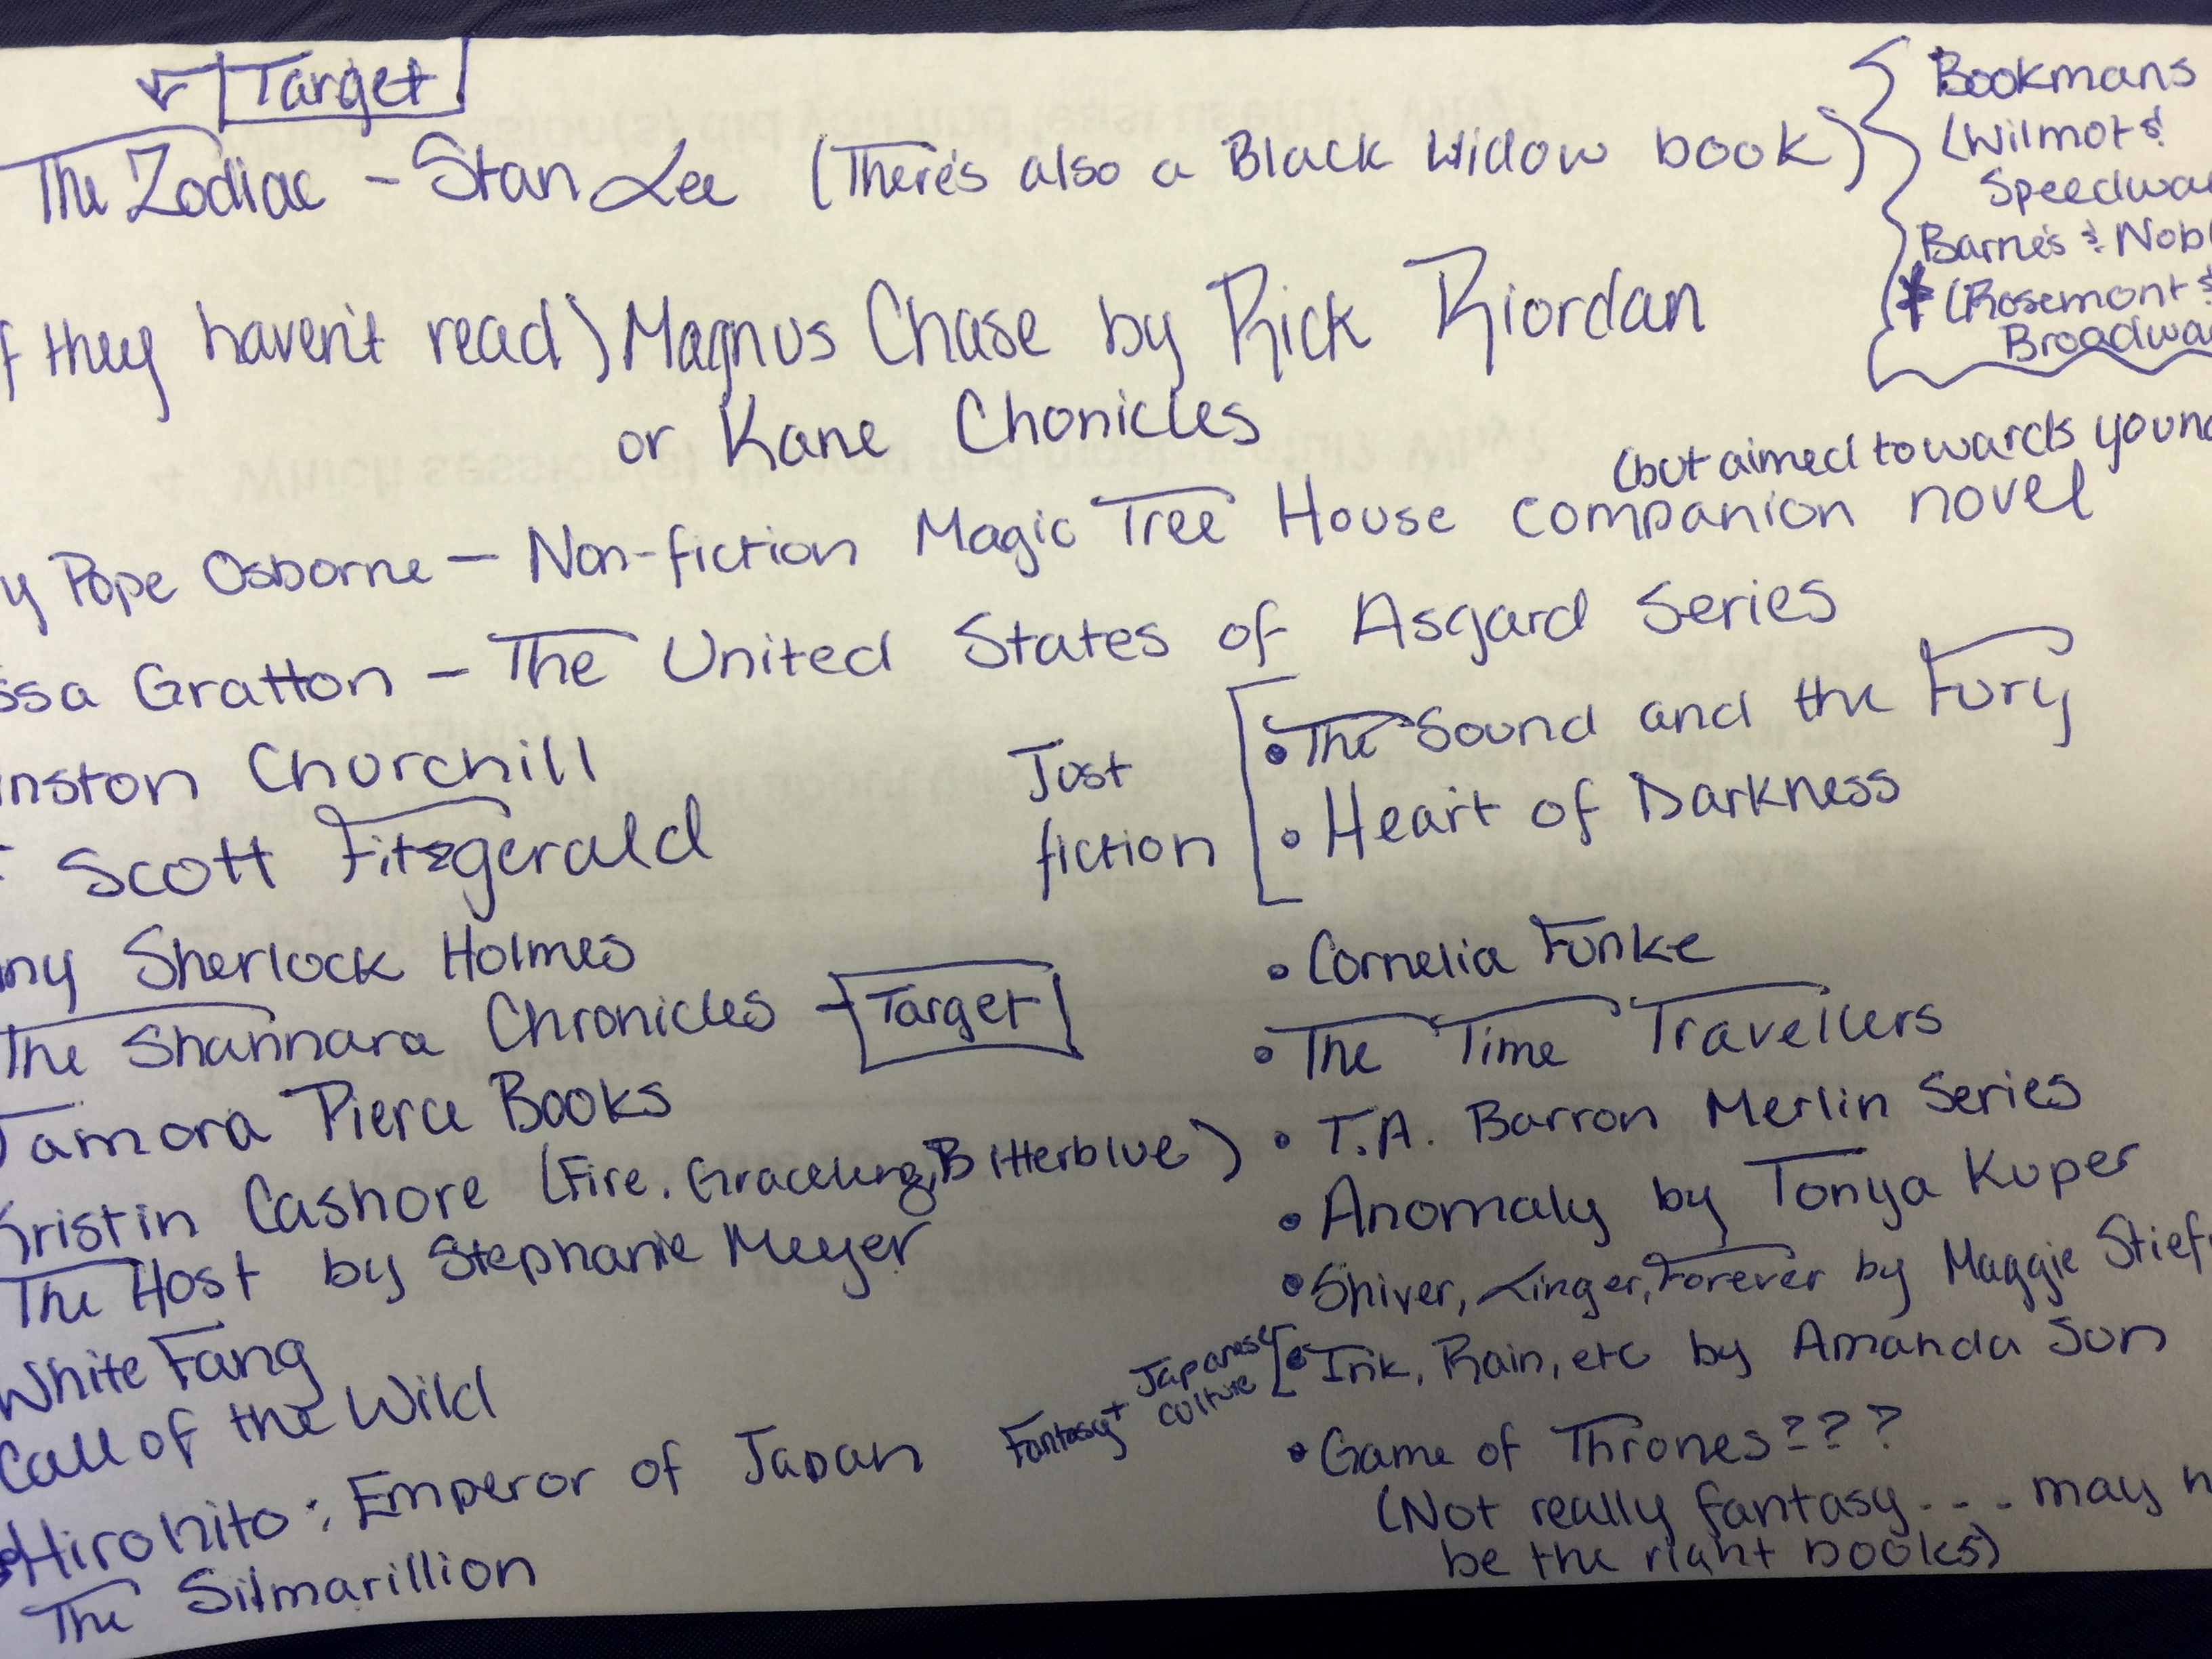 Target
The Zodiac - Stan Lee (There's also a Black Widow book)
Bookmans
(Wilmot &
Speedwa
Barne's & Nobl
* (Rosemont &
Broadwa
f they haven't read) Magnus Chase by Rick Riordan
or Kane Chonicles
(but aimed towards young
y Pope Osborne — Non-fiction Magic Tree House companion novel
ssa Gratton - The United States of Asgard Series
inston Churchill
F Scott Fitzgerald
ny Sherlock Holmes
The Shannara Chronicles - Target
Tamora Pierce Books
Kristin Cashore (Fire, Graceling, Bitterblue)
The Host by Stephanie Meyer
White Fang
Call of the Wild
Hirohito: Emperor of Japan
The Silmarillion
Just
fiction
• The Sound and the Fury
• Heart of Darkness
• Cornelia Funke
• The Time Travellers
• T.A. Barron Merlin Series
• Anomaly by Tonya Kuper
• Shiver, Linger, Forever by Maggie Stief
Fantasy + Japanese
culture
• Ink, Rain, etc by Amanda Sun
• Game of Thrones???
(Not really fantasy... may n
be the right books)